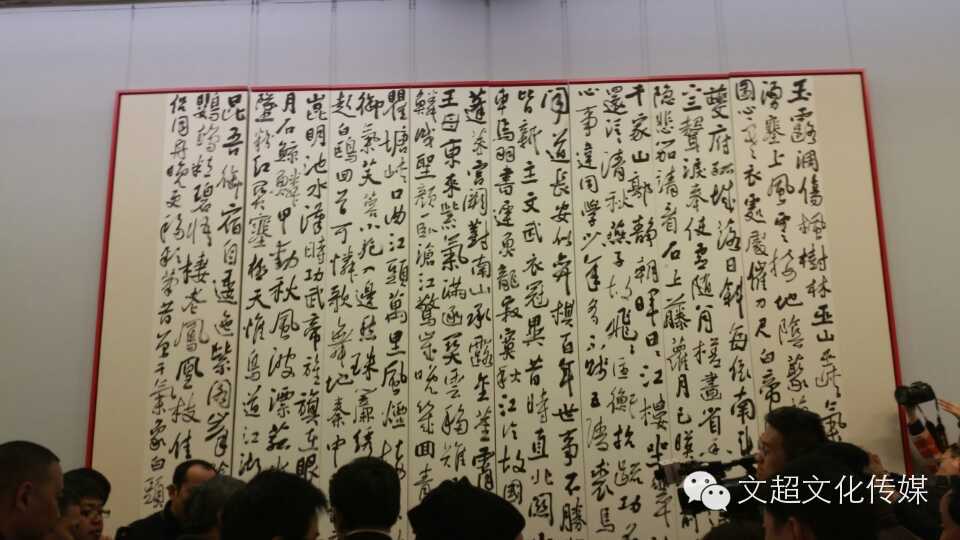 玉露凋傷楓樹林巫山巫峽氣
湧塞上風雲接地陰叢菊
園心寒衣處處催刀尺白帝
夔府孤城落日斜每依南斗
三聲淚奉使虛隨八月槎畫省香
隱悲笳請看石上藤蘿月已映洲前
千家山郭靜朝暉日日江樓坐翠微
還汎汎清秋燕子故飛飛匡衡抗疏功名
心事違同學少年多不賤五陵裘馬
聞道長安似弈棋百年世事不勝
皆新主文武衣冠異昔時直北關
車馬羽書遲魚龍寂寞秋江冷故國
蓬萊宮闕對南山承露金莖霄
王母東來紫氣滿函關雲移雉
鱗識聖顏一臥滄江驚歲晚幾回青
瞿塘峽口曲江頭萬里風煙接
御氣芙蓉小苑入邊愁珠簾繡
起白鷗回首可憐歌舞地秦中
崑明池水漢時功武帝旌旗在眼
月石鯨鱗甲動秋風波漂菰米
墜粉紅關塞極天惟鳥道江湖
昆吾御宿自逶迤紫閣峰陰
鸚鵡粒碧梧棲老鳳凰枝佳
侶同舟晚更移彩筆昔曾干氣象白頭
文超文化传媒